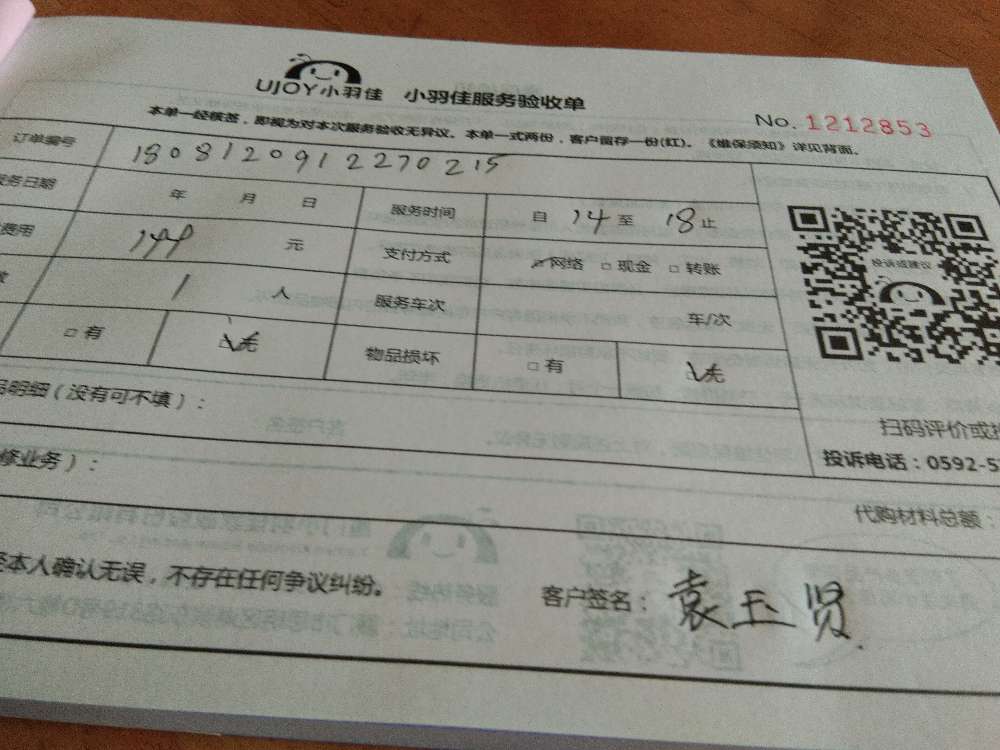 UJOY小羽佳 小羽佳服务验收单
No. 1212853
本单一经核签，即视为对本次服务验收无异议。本单一式两份，客户留存一份(红)。《维保须知》详见背面。
订单编号 1808120912270215
务日期 年 月 日 服务时间 自 14 至 18 止
费用 144 元 支付方式 网络 □ 现金 □ 转账
1 人 服务车次 车/次
□ 有 无 物品损坏 □ 有 无
投诉或建议
品明细（没有可不填）：
扫码评价或投
修业务）：
投诉电话：0592-5
代购材料总额：
本人确认无误，不存在任何争议纠纷。 客户签名：袁玉贤